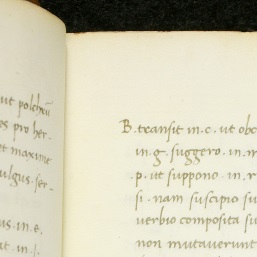 ut polchrū
es pro her-
et maxime
ulgus. ser-
as. in. e.
at. in. i.
B. transit in. c. ut obc
in. g. suggero. in. m
p. ut suppono. in. r
si. nam suscipio su
verbio composita su
non mutaverunt